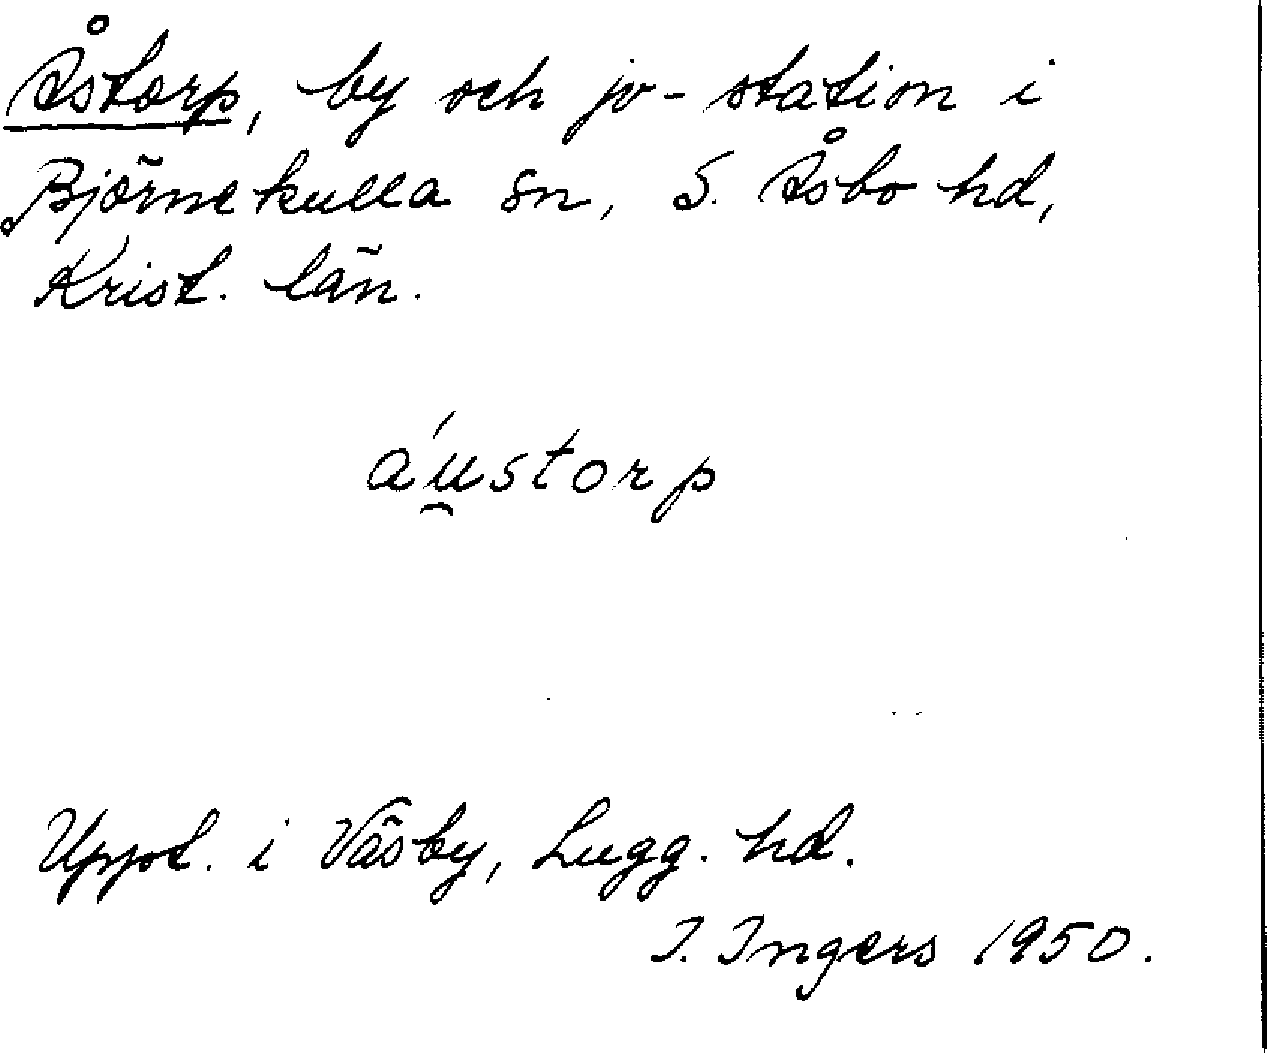 Åstorp, by och jv-station i
Björnekulla sn, S. Åsbo hd,
Krist. län.
áu̯storp
Uppt. i Väsby, Lugg. hd.
I. Ingers 1950.